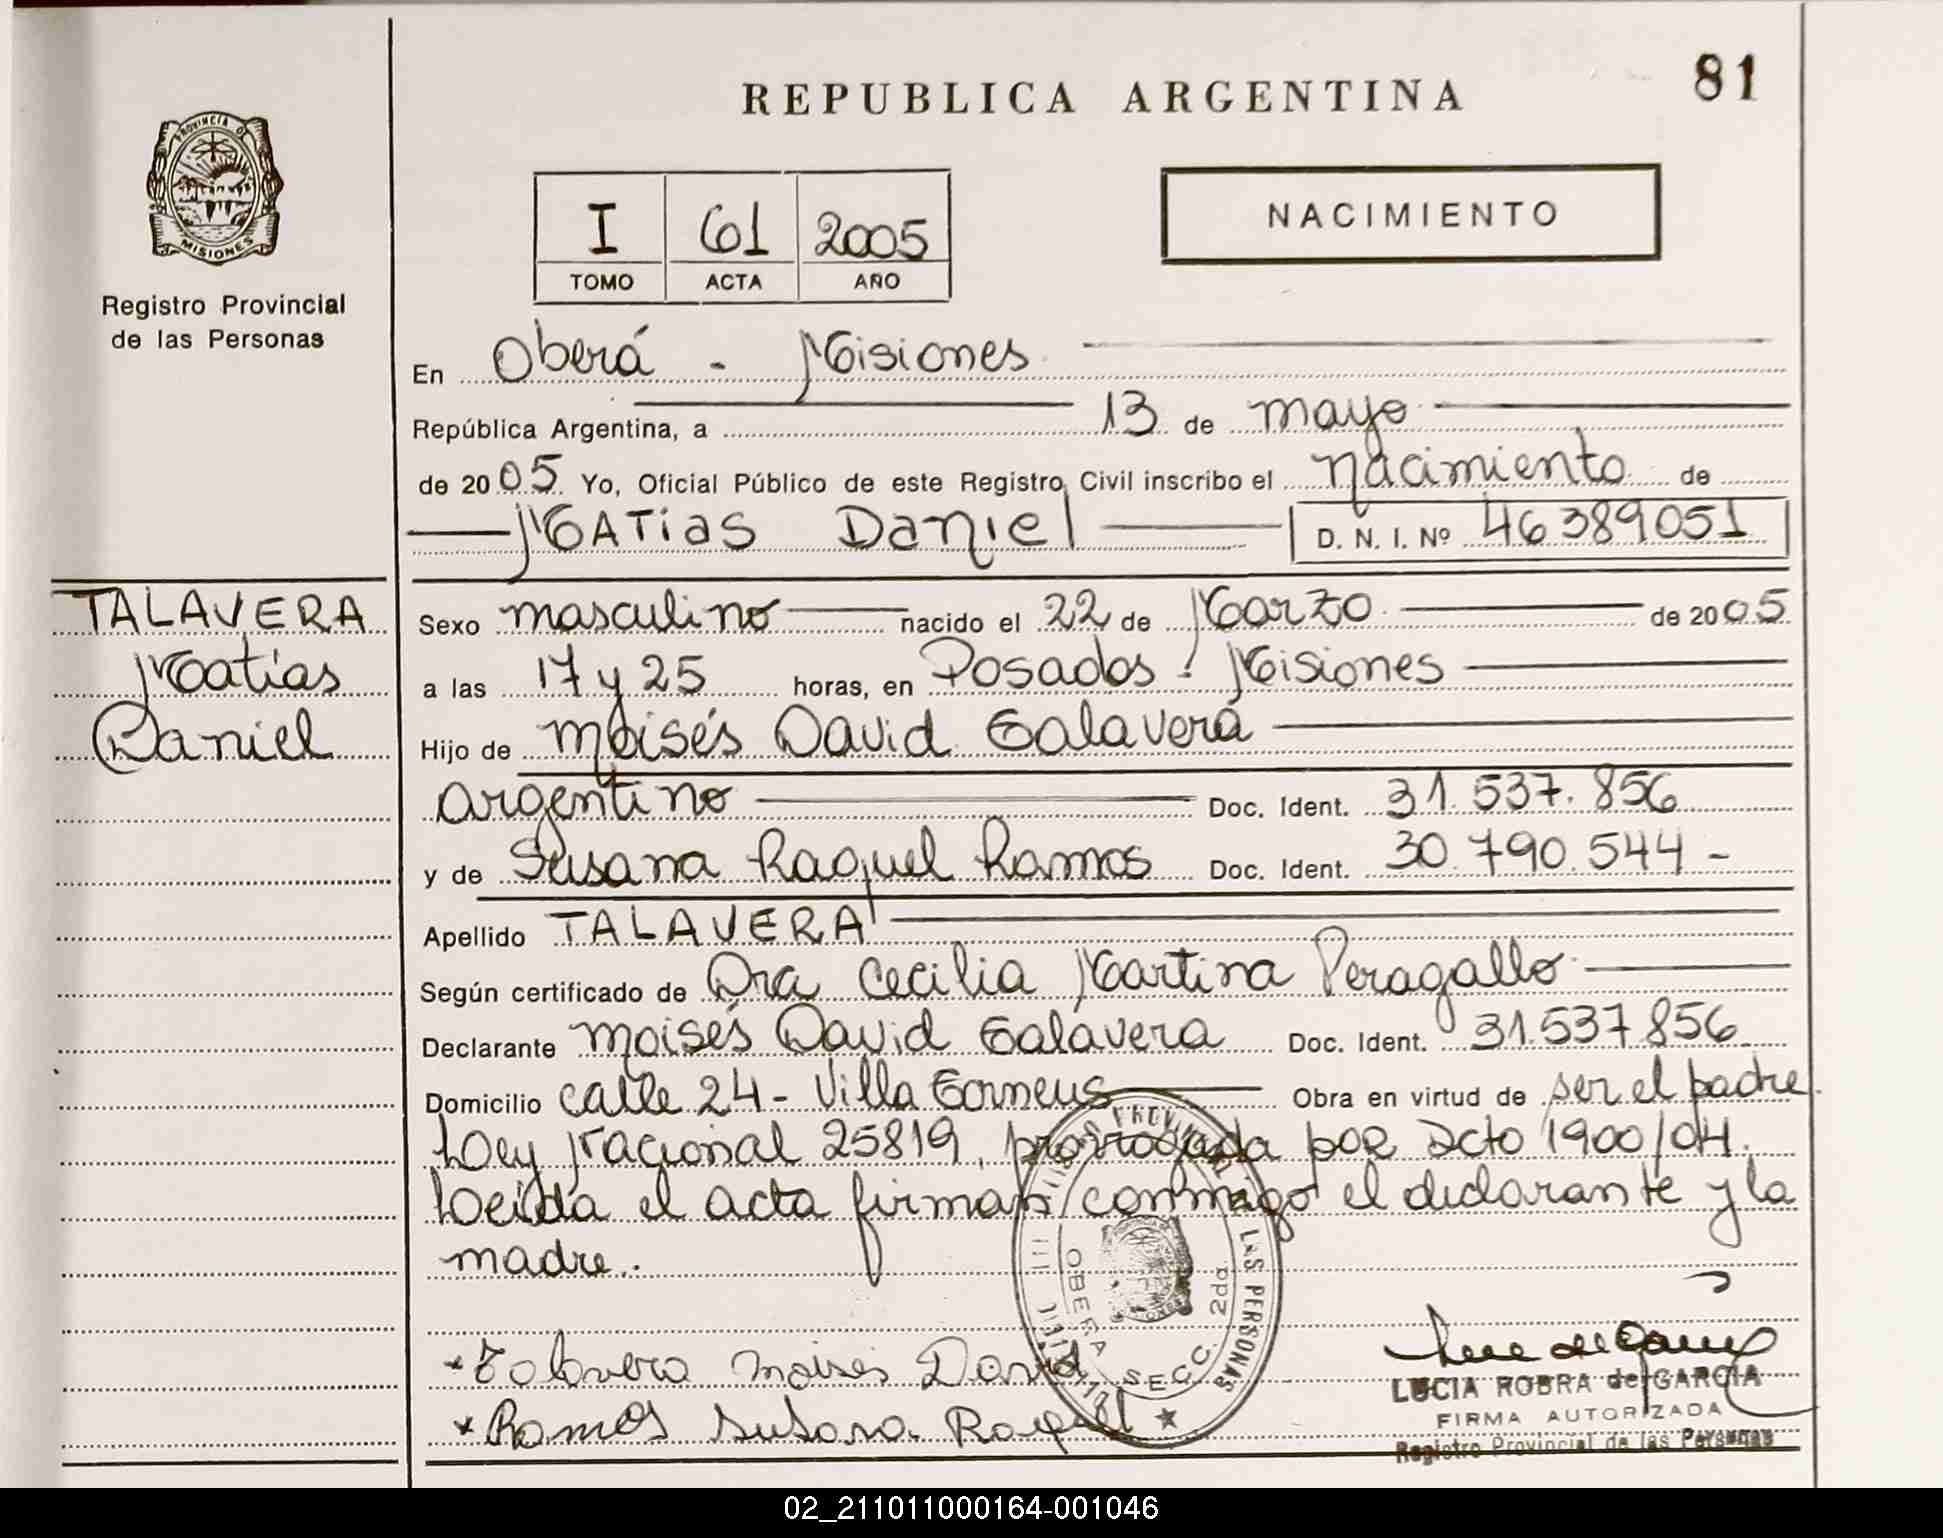 REPUBLICA ARGENTINA
81
PROVINCIA DE
MISIONES
Registro Provincial
de las Personas
I 61 2005
TOMO ACTA AÑO
NACIMIENTO
En Oberá - Misiones
República Argentina, a 13 de mayo
de 2005 Yo, Oficial Público de este Registro Civil inscribo el nacimiento de
MATIAS Daniel D. N. I. Nº 46389051
TALAVERA
Matías
Daniel
Sexo masculino nacido el 22 de Marzo de 2005
a las 17 y 25 horas, en Posadas - Misiones
Hijo de Moisés David Talavera
argentino Doc. Ident. 31.537.856
y de Susana Raquel Ramos Doc. Ident. 30.790.544 -
Apellido TALAVERA
Según certificado de Dra Cecilia Martina Peragallo
Declarante Moisés David Talavera Doc. Ident. 31.537.856
Domicilio calle 24 - Villa Obra en virtud de ser el padre.
Ley Nacional 25819, prorrogada por Dcto 1900/04.
Leída el acta firman conmigo el declarante y la
madre.
LAS PERSONAS
OBERA SECC. 2da
* Talavera Moises David
* Ramos Susana Raquel
LUCIA ROBRA de GARCIA
FIRMA AUTORIZADA
Registro Provincial de las Personas
02_211011000164-001046